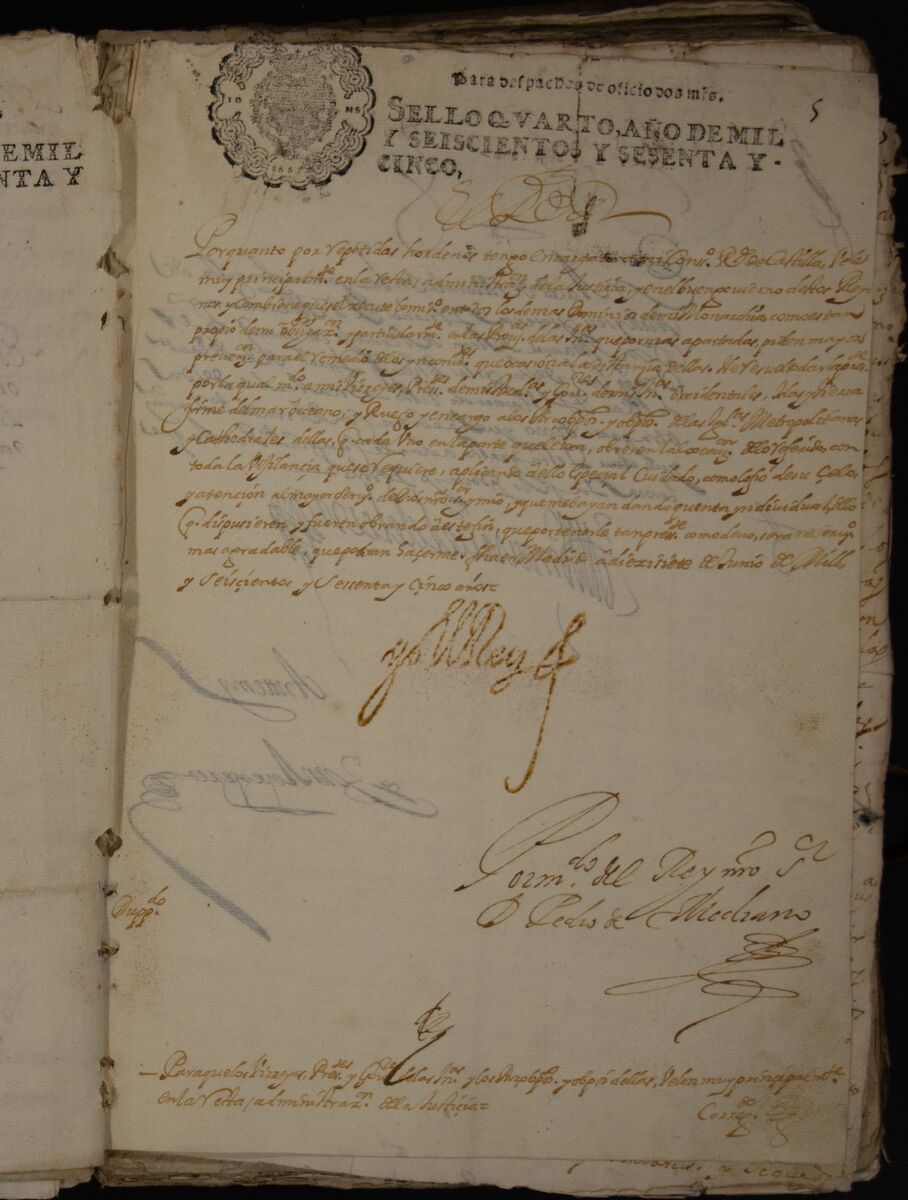 Para despachos de oficio dos mrs.
5
SELLO QVARTO, AÑO DE MIL
Y SEISCIENTOS Y SESENTA Y
CINCO,
El Rey
Por quanto por repetidas hordenes tengo encargado Cons.º R.l de Castilla,
muy principalm.te en la recta administraz.n de la Justicia, y en el buen govierno destos Rey
nos, y combiene que se execute lo mismo en todos los demas Dominios de mi Monarchia, como es tan
propio de mi obligaz.on y particularm.te en las Prov.as de las In.s que por mas apartadas, piden mayor
preven.on para el remedio de los yncombi.tes que ocasiona la distançia dellas. He resuelto dar la pres.te
por la qual m.do a mis Virreyes, Press.tes de mis Aud.as R.les y Gov.res de mis In.s occidentales, Islas y tierra
firme del mar occeano; y Ruego y encargo a los Arçobpos. y obpos. de las Igl.as Metropolitanas
y Cathedrales dellas, q. cada uno en la parte que le toca, obre en la exeçu.on de lo referido, con
toda la Vigilançia que se requiere, aplicando a ello espeçial Cuidado, como lo fio de su Çelo,
y atençion al mayor servi.º de Dios nro. s.or y mio, y que me bayan dando quenta yndividual de lo
q. dispusieren y fueren obrando a este fin, que por tenerlo tan pres.te como devo, sera
mas agradable, que podran haçerme. fha en Madrid a diez i siete de Junio de Mill
y Seisçientos y Sessenta y Cinco años=
yo el Rey
Por m.do del Rey nro s.r
D Pedro de Medrano
Dupp.do
— Para que los Virreyes, Pres.tes y Gov.res de las In.s y los Arçobpos. y obpos dellas, velen muy principalm.te
en la recta administraz.n de la Justicia=
Correg.do